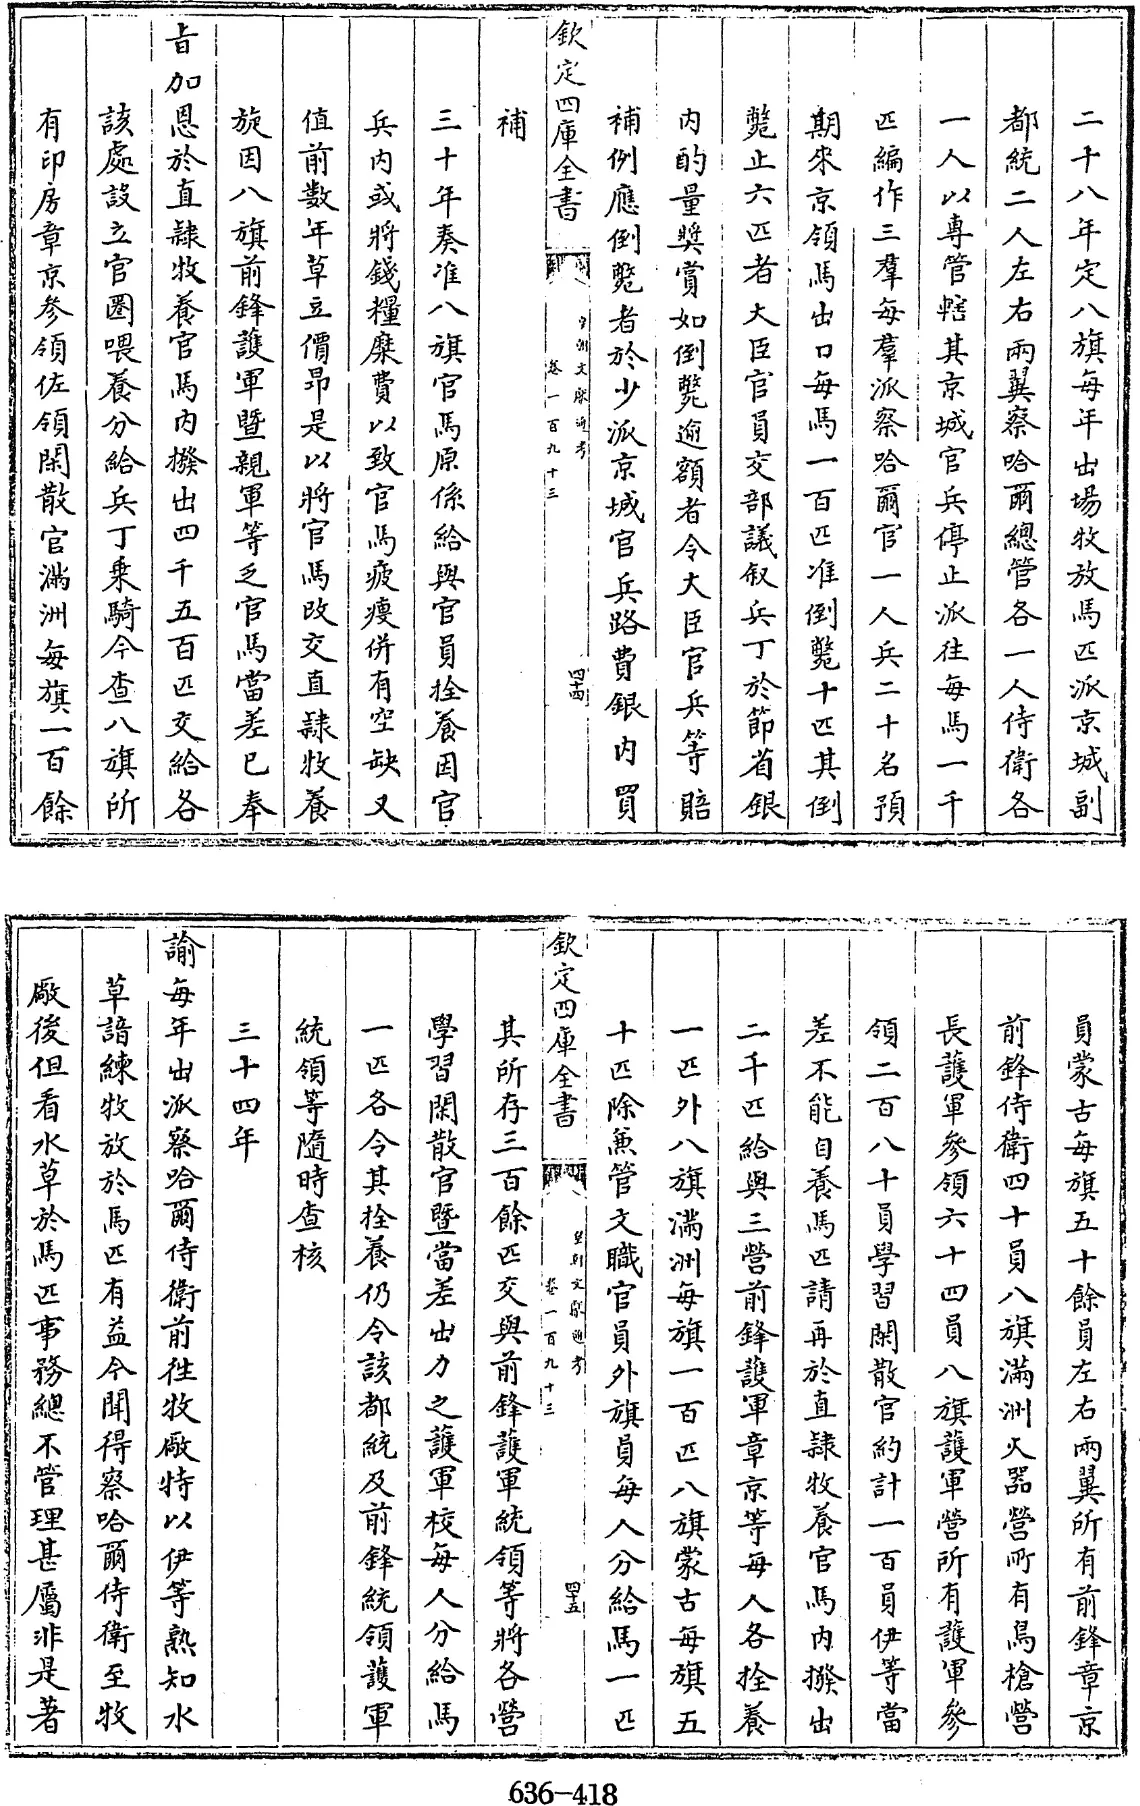 二十八年定八旗每年出場牧放馬匹派京城副
都統二人左右兩翼察哈爾總管各一人侍衛各
一人以專管轄其京城官兵停止派往每馬一千
匹編作三羣每羣派察哈爾官一人兵二十名預
期來京領馬出口每馬一百匹准倒斃十匹其倒
斃止六匹者大臣官員交部議叙兵丁於節省銀
內酌量奬賞如倒斃逾額者令大臣官兵等賠
補例應倒斃者於少派京城官兵路費銀內買
欽定四庫全書
皇朝文獻通考
卷一百九十三
四十四
補
三十年奏准八旗官馬原係給與官員拴養因官
兵內或將錢糧糜費以致官馬疲瘦併有空缺又
值前數年草豆價昂是以將官馬改交直隸牧養
旋因八旗前鋒護軍暨親軍等乏官馬當差已奉
㫖加恩於直隸牧養官馬內撥出四千五百匹交給各
該處設立官圈喂養分給兵丁乘騎今查八旗所
有印房章京參領佐領閑散官滿洲每旗一百餘
員蒙古每旗五十餘員左右兩翼所有前鋒章京
前鋒侍衛四十員八旗滿洲火器營所有鳥槍營
長護軍參領六十四員八旗護軍營所有護軍參
領二百八十員學習閑散官約計一百員伊等當
差不能自養馬匹請再於直隸牧養官馬內撥出
二千匹給與三營前鋒護軍章京等每人各拴養
一匹外八旗滿洲每旗一百匹八旗蒙古每旗五
十匹除兼管文職官員外旗員每人分給馬一匹
欽定四庫全書
皇朝文獻通考
卷一百九十三
四十五
其所存三百餘匹交與前鋒護軍統領等將各營
學習閑散官暨當差出力之護軍校每人分給馬
一匹各令其拴養仍令該都統及前鋒統領護軍
統領等隨時查核
三十四年
諭每年出派察哈爾侍衛前往牧廠特以伊等熟知水
草諳練牧放於馬匹有益今聞得察哈爾侍衛至牧
廠後但看水草於馬匹事務總不管理甚屬非是著
636-418